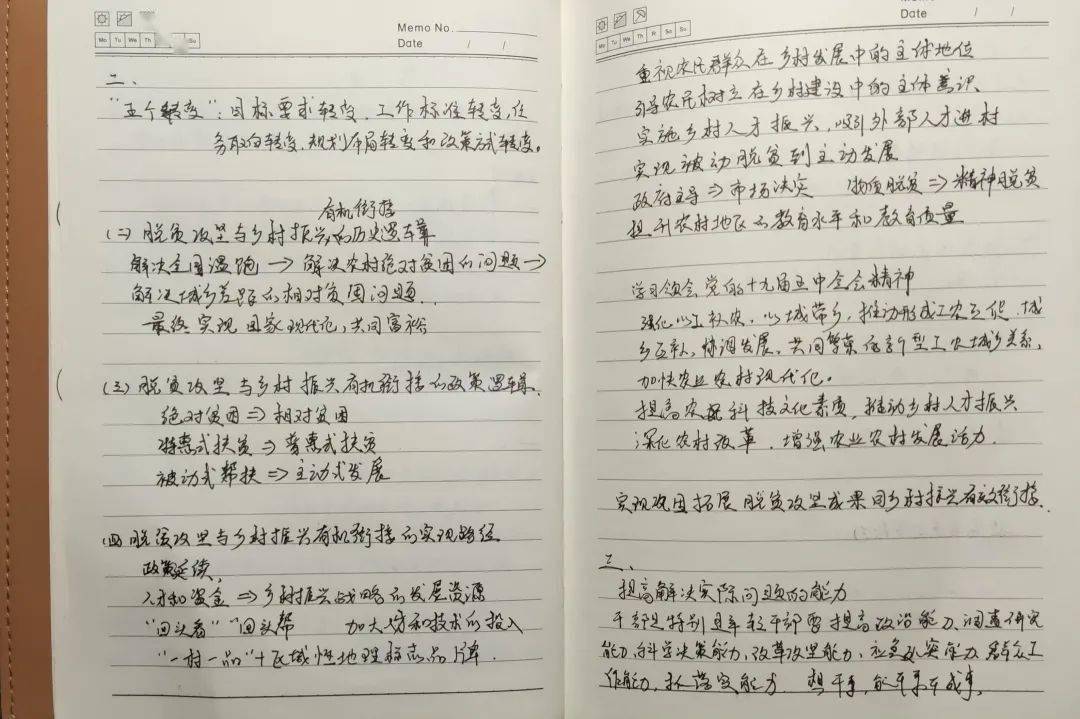 Memo No.
Mo Tu We Th Su
Date / /
二、
"五个转变":目标要求转变、工作标准转变、任
务取向转变、规划布局转变和政策方式转变。
有机衔接
(二) 脱贫攻坚与乡村振兴的历史逻辑
解决全国温饱 → 解决农村绝对贫困的问题 →
解决城乡差距的相对贫困问题.
最终实现国家现代化,共同富裕
(三) 脱贫攻坚与乡村振兴有机衔接的政策逻辑.
绝对贫困 ⇒ 相对贫困
特惠式扶贫 ⇒ 普惠式扶贫
被动式帮扶 ⇒ 主动式发展
(四) 脱贫攻坚与乡村振兴有机衔接的实现路径
政策延续,
人才和资金 ⇒ 乡村振兴战略的发展资源
"回头看" "回头帮 加大 和技术的投入
"一村一品" + 区域性地理标志品牌.
Date / /
Mo Tu We Th Fr Sa Su
重视农民群众在乡村发展中的主体地位
引导农民树立在乡村建设中的主体意识.
实施乡村人才振兴,吸引外部人才进村
实现被动脱贫到主动发展
政府主导 ⇒ 市场决定 物质脱贫 ⇒ 精神脱贫
提升农村地区的教育水平和教育质量
学习领会党的十九届五中全会精神
强化以工补农,以城带乡,推动形成工农互促、城
乡互补,协调发展、共同繁荣的新型工农城乡关系,
加快农业农村现代化。
提高农民科技文化素质,推动乡村人才振兴
深化农村改革.增强农业农村发展活力.
实现巩固拓展脱贫攻坚成果同乡村振兴有效衔接.
三、
提高解决实际问题的能力
干部特别是年轻干部要提高政治能力、调查研究
能力,科学决策能力,改革攻坚能力,应急处突能力,群众工
作能力,抓落实能力. 想干事,能干事,干成事,